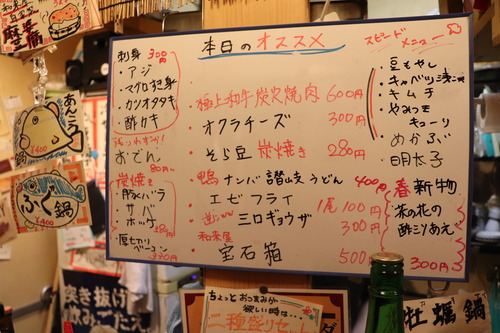 本日のオススメ
刺身 300円
・アジ
・マグロすき身
・カツオタタキ
・酢カキ
おでん
80円〜
炭焼き
・豚バラ
・サバ
・ホッケ
・厚切り
ベーコン
極上和牛炭火焼肉 600円
オクラチーズ 300円
そら豆炭焼き 280円
鴨ナンバ讃岐うどん 400円
エビフライ 1尾 100円
三口ギョウザ 300円
和楽屋
宝石箱 500
スピード
メニュー
豆もやし
キャベツ浅漬
キムチ
やみつき
キューリ
めかぶ
明太子
春新物
菜の花の
酢みそあえ
300円
あんこう
¥400
ふぐ
鍋
¥400
突き抜け
飲みごたえ
ちょっとおつまみが
欲しい時は…
二種盛りセット
牡蠣鍋